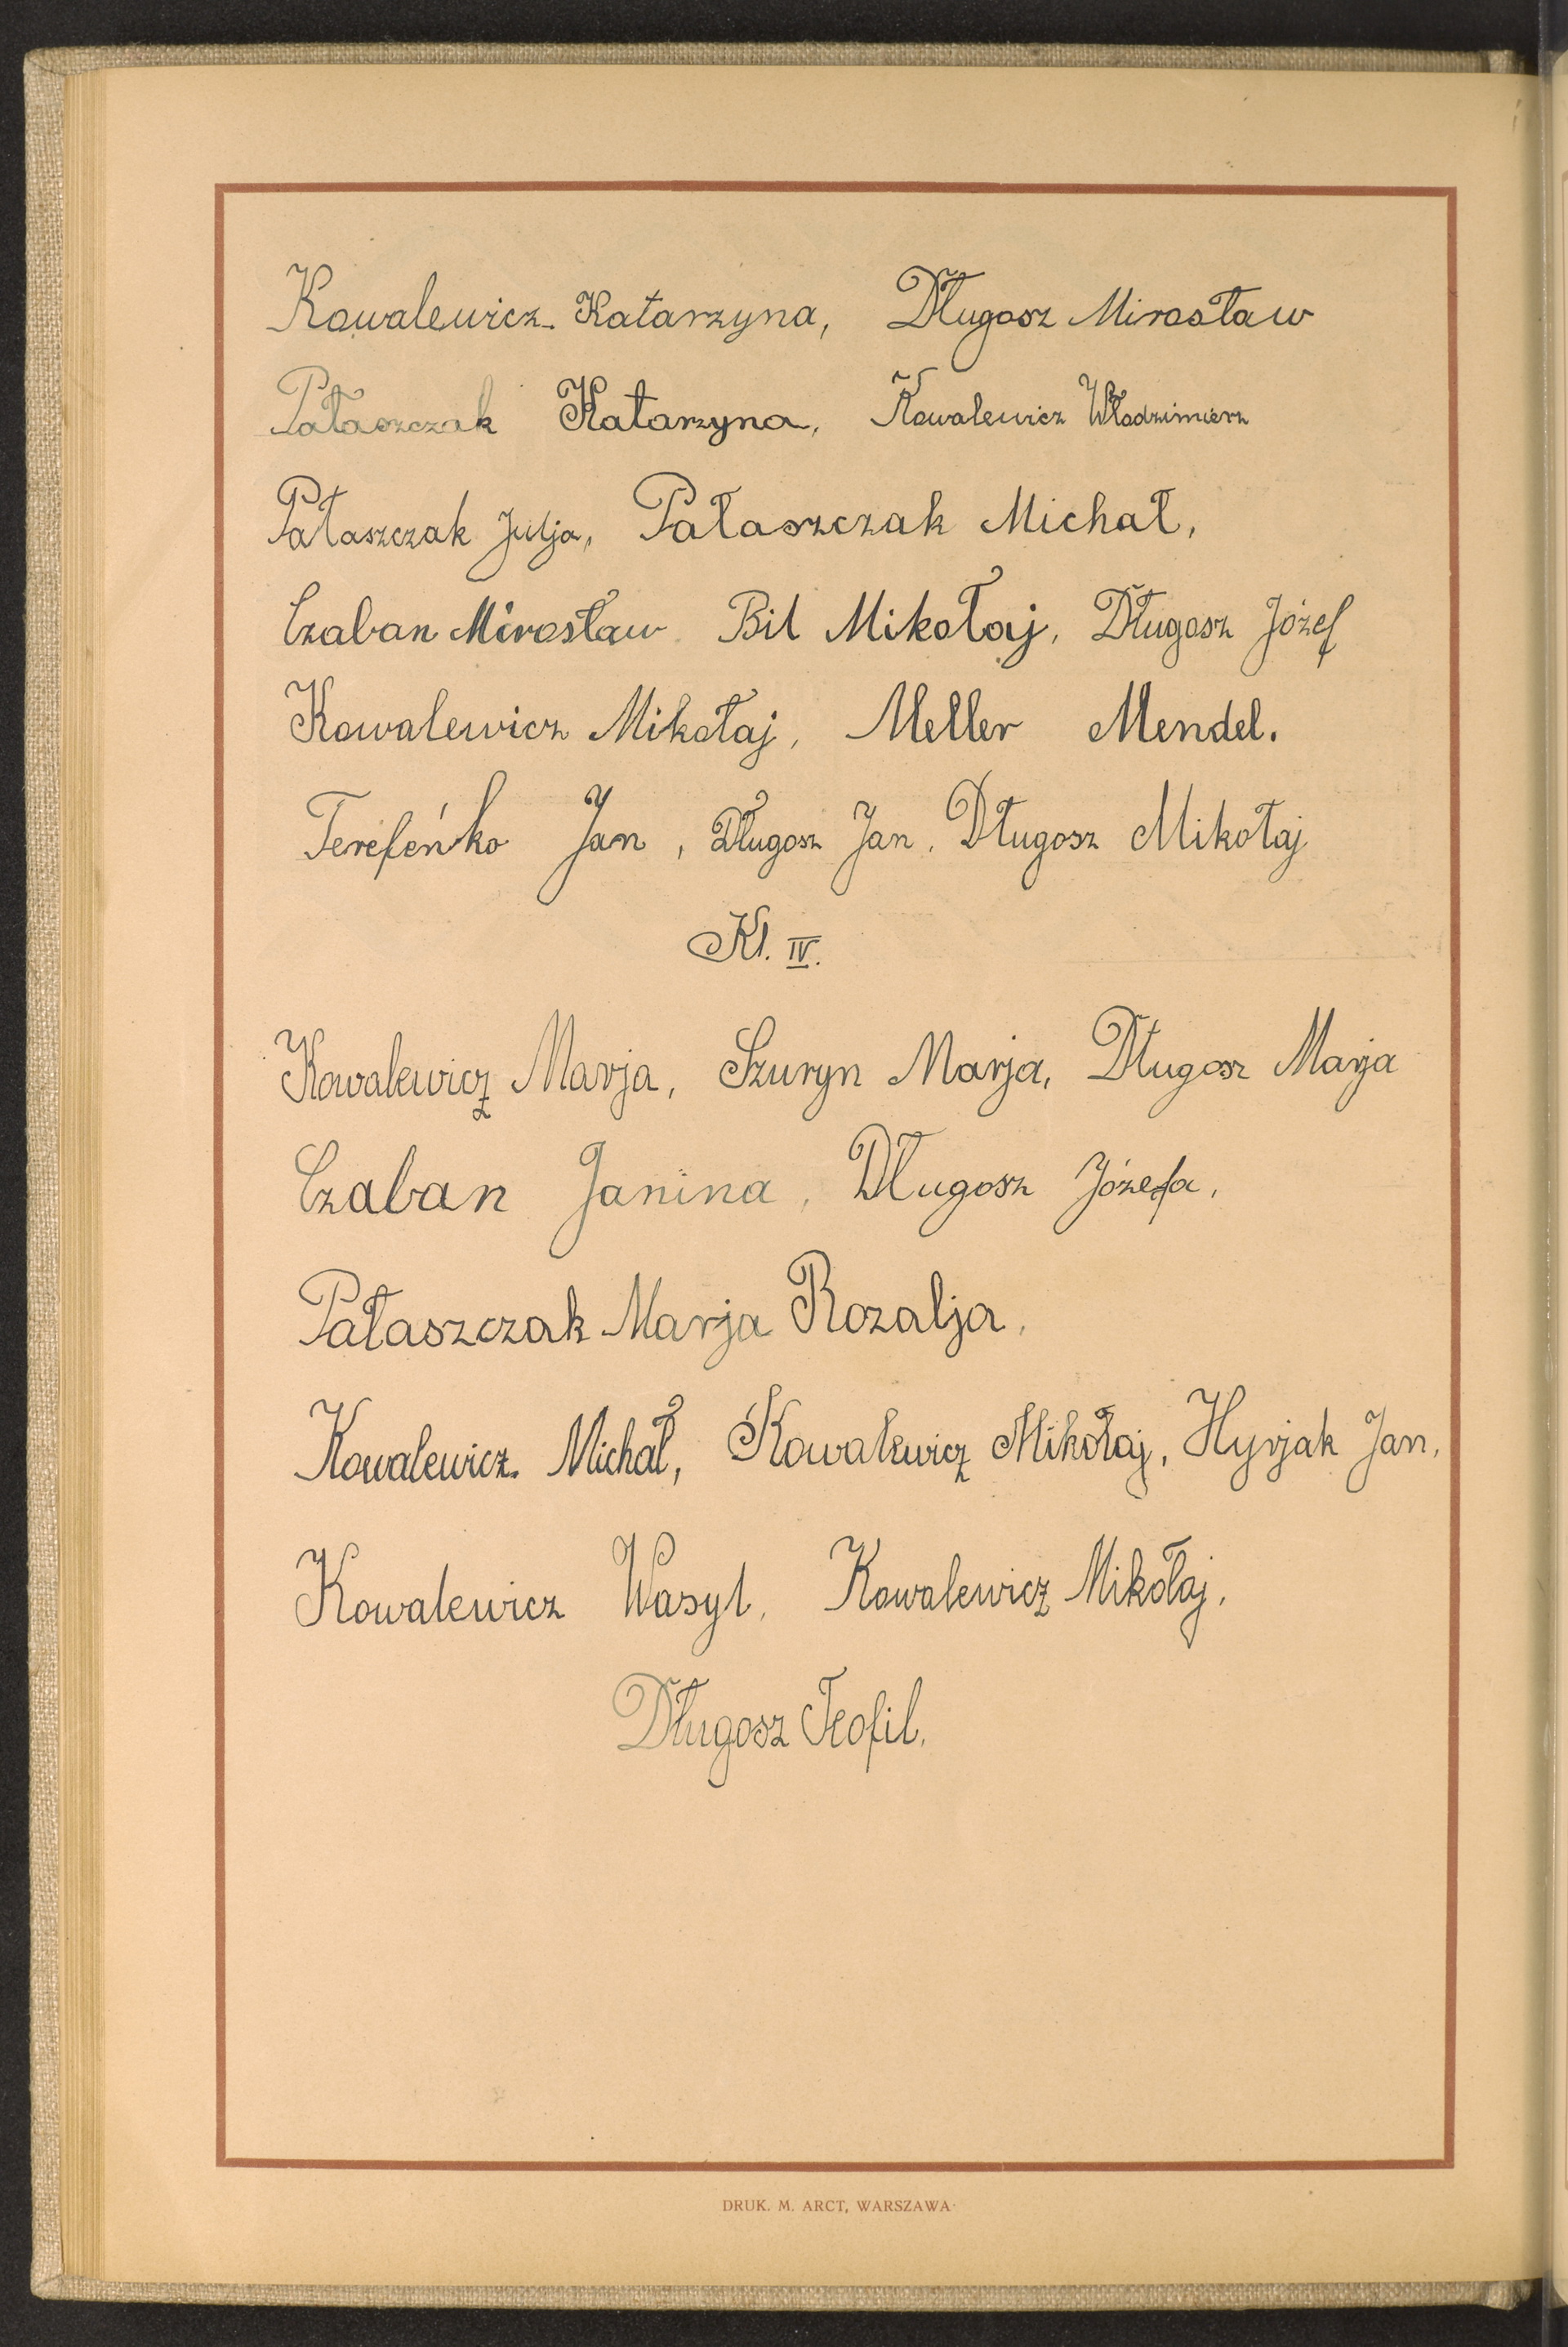 Kowalewicz Katarzyna, Długosz Mirosław
Pałaszczak Katarzyna, Kowalewicz Włodzimierz
Pałaszczak Julja, Pałaszczak Michał,
Czaban Mirosław Bil Mikołaj, Długosz Józef
Kowalewicz Mikołaj, Meller Mendel.
Terefeńko Jan, Długosz Jan, Długosz Mikołaj
Kl. IV.
Kowalewicz Marja, Szuryn Marja, Długosz Marja
Czaban Janina, Długosz Józefa,
Pałaszczak Marja Rozalja,
Kowalewicz Michał, Kowalewicz Mikołaj, Hyrjak Jan,
Kowalewicz Wasyl, Kowalewicz Mikołaj,
Długosz Teofil,
DRUK. M. ARCT, WARSZAWA